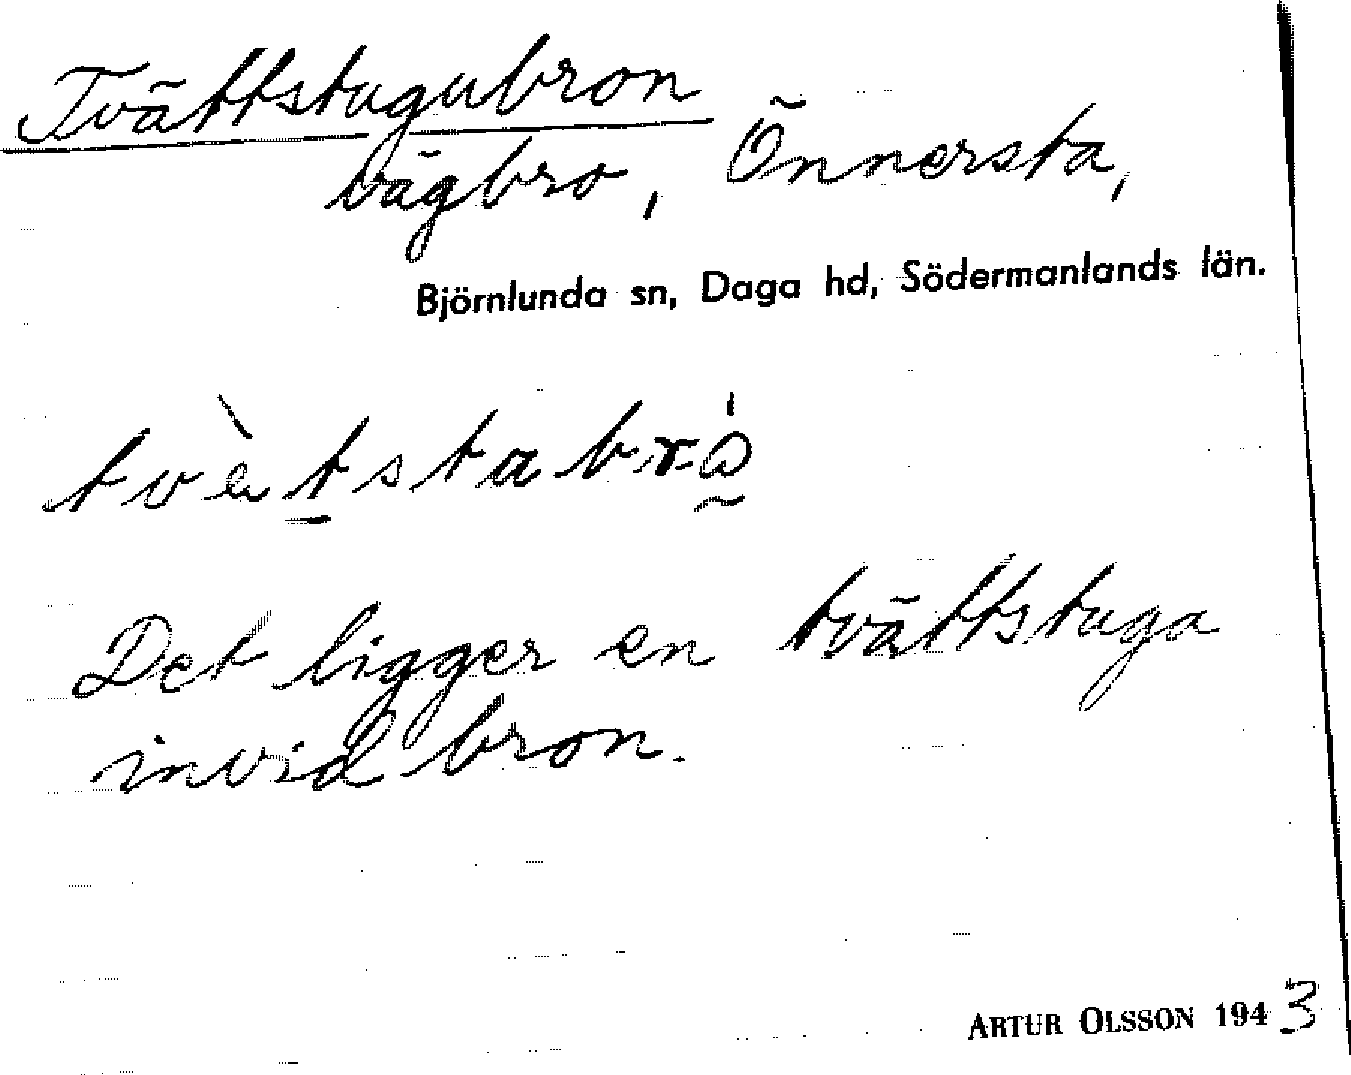 Tvättstugubron
vägbro, Önnersta,
Björnlunda sn, Daga hd, Södermanlands län.
tvὲtstabró̰
Det ligger en tvättstuga
invid bron.
ARTUR OLSSON 1943